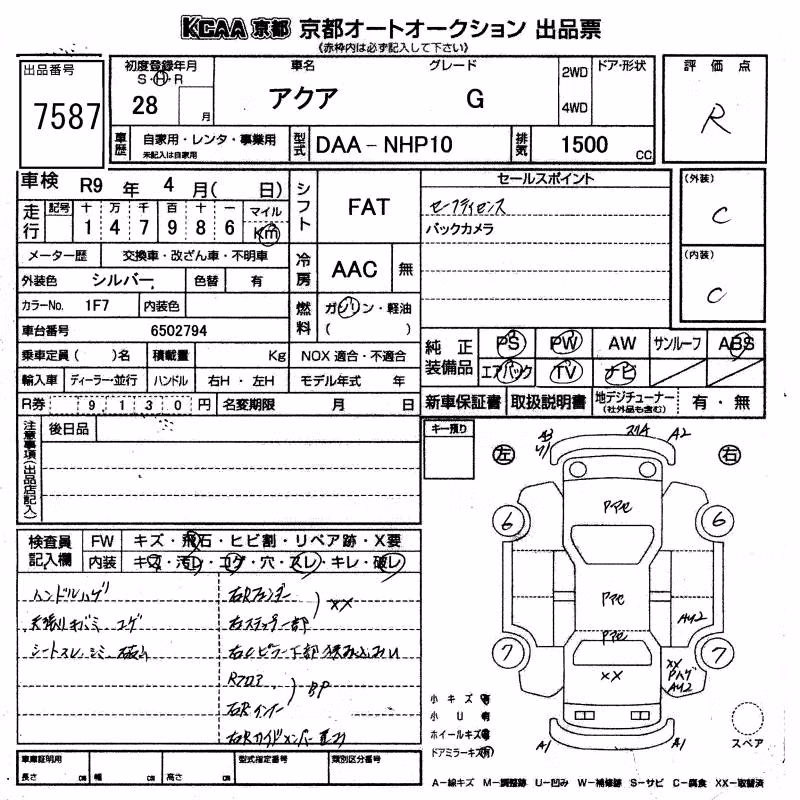 KCAA 京都 京都オートオークション 出品票
《赤枠内は必ず記入して下さい》
出品番号
7587
初度登録年月
S・H・R
28 月
車名 グレード
アクア G
2WD
4WD
ドア・形状
車歴 自家用・レンタ・事業用
未記入は自家用
型式 DAA－NHP10
排気 1500 CC
評価点
R
(外装)
C
(内装)
C
車検 R9 年 4 月( 日)
走行 記号 十 万 千 百 十 一 マイル
1 4 7 9 8 6 Km
メーター歴 交換車・改ざん車・不明車
外装色 シルバー 色替 有
カラーNo. 1F7 内装色
車台番号 6502794
乗車定員( )名 積載量 Kg
輸入車 ディーラー・並行 ハンドル 右H・左H
R券 9130 円 名変期限 月 日
シフト FAT
冷房 AAC 無
燃料 ガソリン・軽油
( )
NOX 適合・不適合
モデル年式 年
セールスポイント
セーフティセンス
バックカメラ
純正装備品 PS PW AW サンルーフ ABS
エアバック TV ナビ
新車保証書 取扱説明書 地デジチューナー
(社外品も含む)
有・無
注意事項(出品店記入)
後日品
キー預り
検査員記入欄
FW キズ・飛石・ヒビ割・リペア跡・X要
内装 キズ・汚レ・コゲ・穴・スレ・キレ・破レ
ハンドルハゲ
天張りキバミ コゲ
シートスレ シミ 破レ
右Rフェンダー
右ステップ一部
XX
右Cピラー下部
Rフロア
右Rインナー
BP
左 右
A3
スリA A2
PPセ
6 6
PPセ
PPセ
AU2
7 7
XX
XX
Pハゲ
AU2
A1 A1
小キズ 有
小U 有
ホイールキズ 有
ドアミラーキズ 有
スペア
車庫証明用
長さ cm 幅 cm 高さ cm
型式指定番号
類別区分番号
A－線キズ M－調整跡 U－凹み W－補修跡 S－サビ C－腐食 XX－取替済